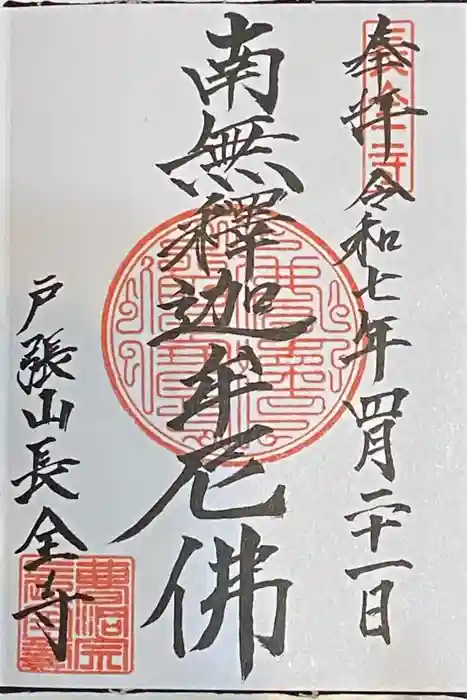 奉拝 令和七年 四月二十一日
南無釋迦牟尼佛
戸張山 長全寺
長全寺